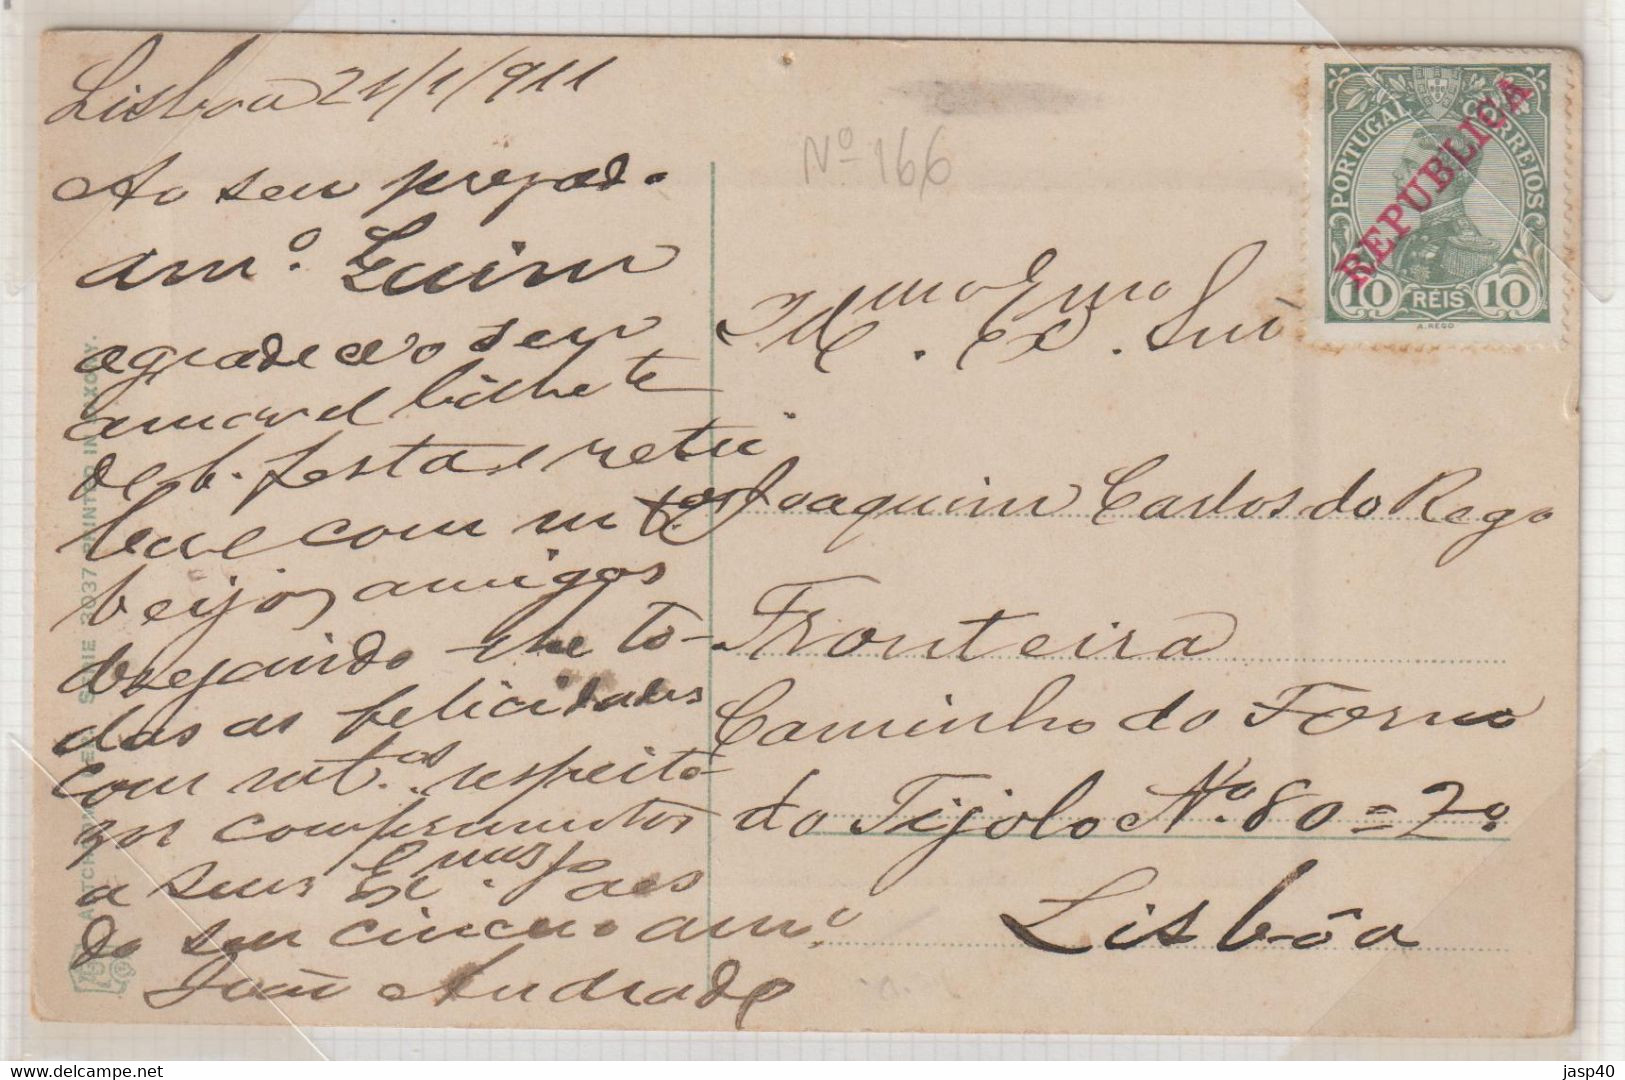 Lisboa 21/1/911
Ao seu prezado
am.º Quim
agradece o seu
amavel bilhete
de b. festas e retri
bue com m.tos
beijos amigos
desejando lhe to-
das as felicidades
com mt.os respeito-
zos comprimentos
a seus Ex.mos Paes
do seu cincero am.º
João Andrade
Nº 166
Ill.mo Ex.mo Snr
Joaquim Carlos do Rego
Fronteira
Caminho do Forno
do Tijolo Nº 80 = 2º
Lisbôa
PORTUGAL CORREIOS
REPUBLICA
10 RÉIS 10
A. REGO
SERIE 3037 PRINTED IN SAXONY.
jasp40
delcampe.net